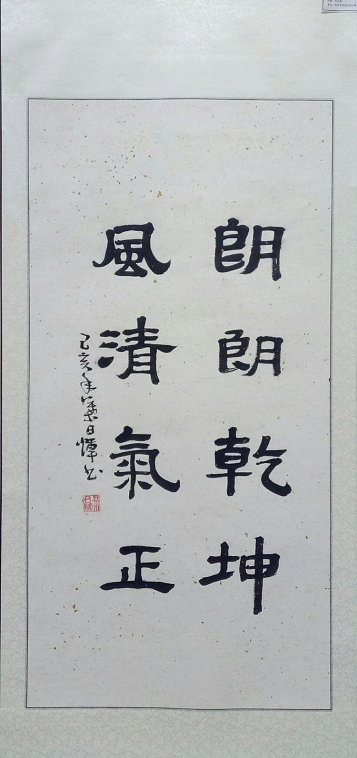 朗朗乾坤
風清氣正
己亥年葉日煇书